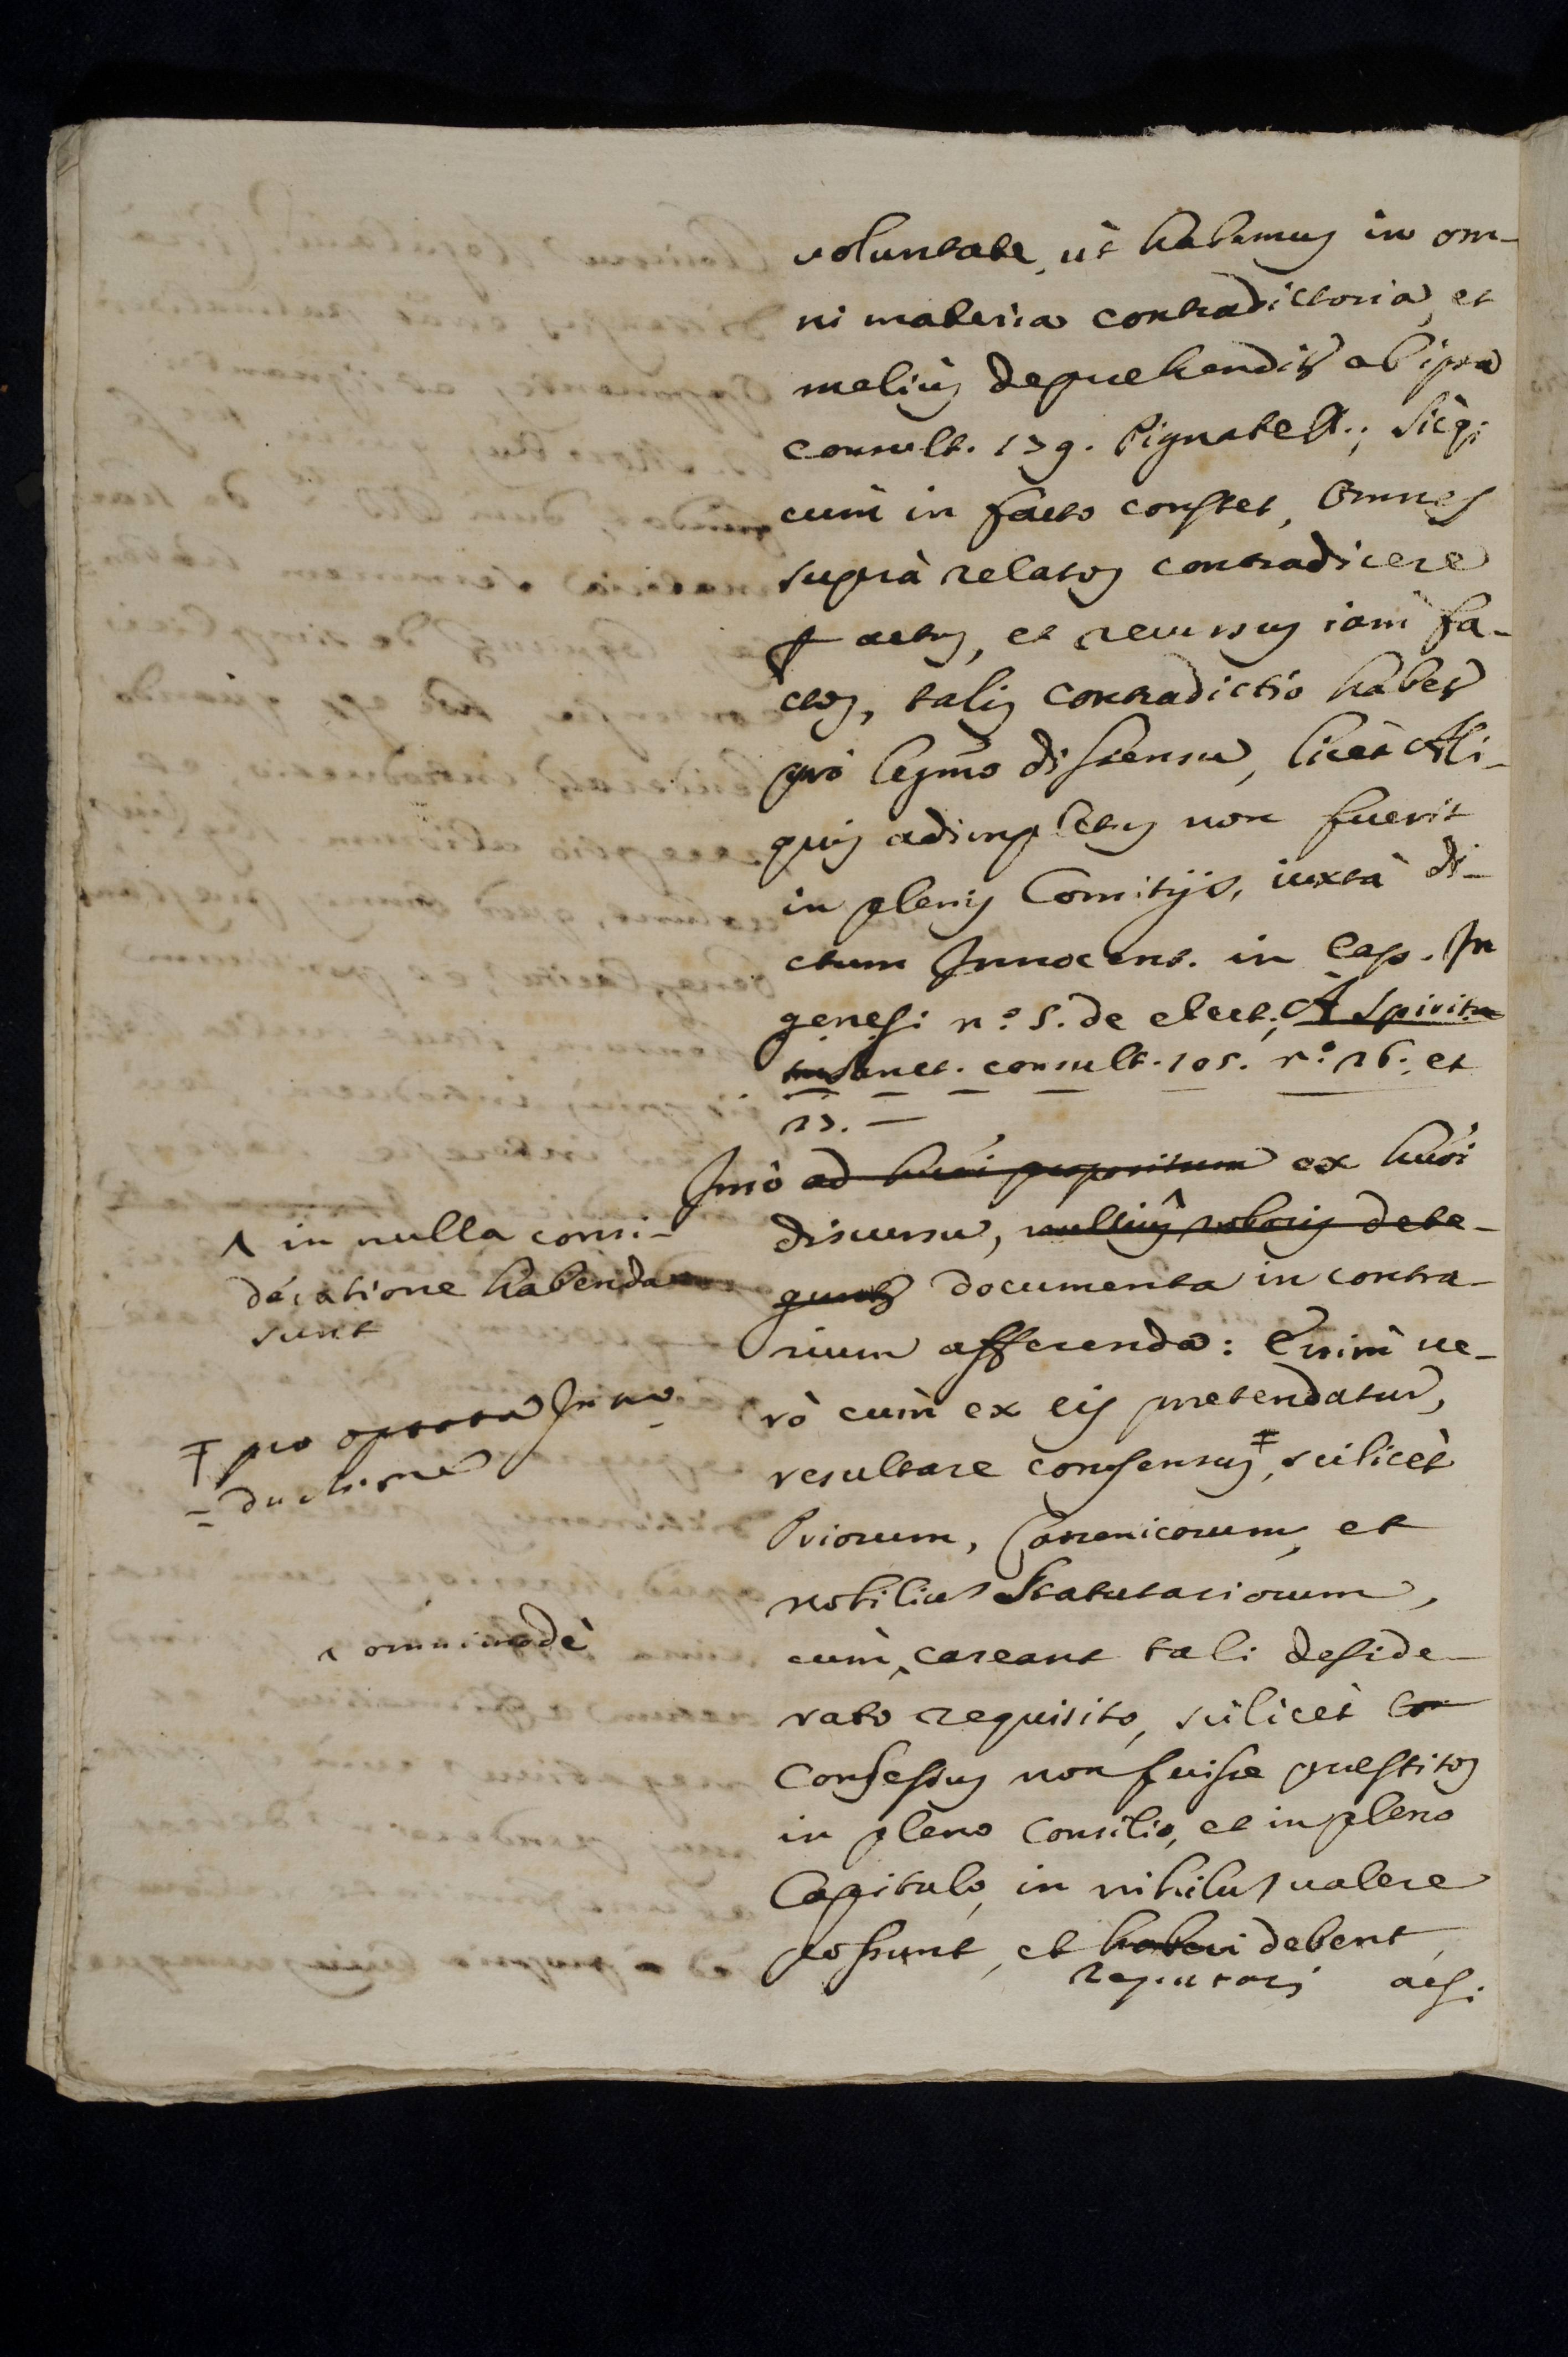 voluntate, ùt habemus in om-
ni materia contradictoria, et
melius deprehenditr ab ipsa
consult. 179. Pignatell.; Sicq;
cum in facto constet, Omnes
suprà relatos contradicere
actus, et recursus iam fa-
ctos, talis contradictio habetr
prò legmo dissensu, licèt Ali-
quis adimpletus non fuerit
in plenis Comitijs, iuxtà di-
ctum Innocent. in Cap. In
genesi n.o 5. de elect; A Spiritu
Sanct. consult. 105. n.o 26. et
27. —
Imò ad huiùsi propositum ex huiùsi
discursu, nullius roboris dete-
guntr documenta in contra-
rium afferenda: Enim ve-
rò cum ex eis pretendatur,
resultare consensus ‡, scilicèt
Priorum, Canonicorum, et
nobiliu Statutariorum,
cum ‸ careant tali deside-
rato requisito, scilicèt co
Consessus non fuisse prestitos
in pleno Consilio, et in pleno
Capitulo, in nihilu valere
possunt, et haberi debent,
reputari acsi
‸ in nulla consi-
deratione habenda
sunt
‡ pro optata Intro
-ductione
‸ omnimodè